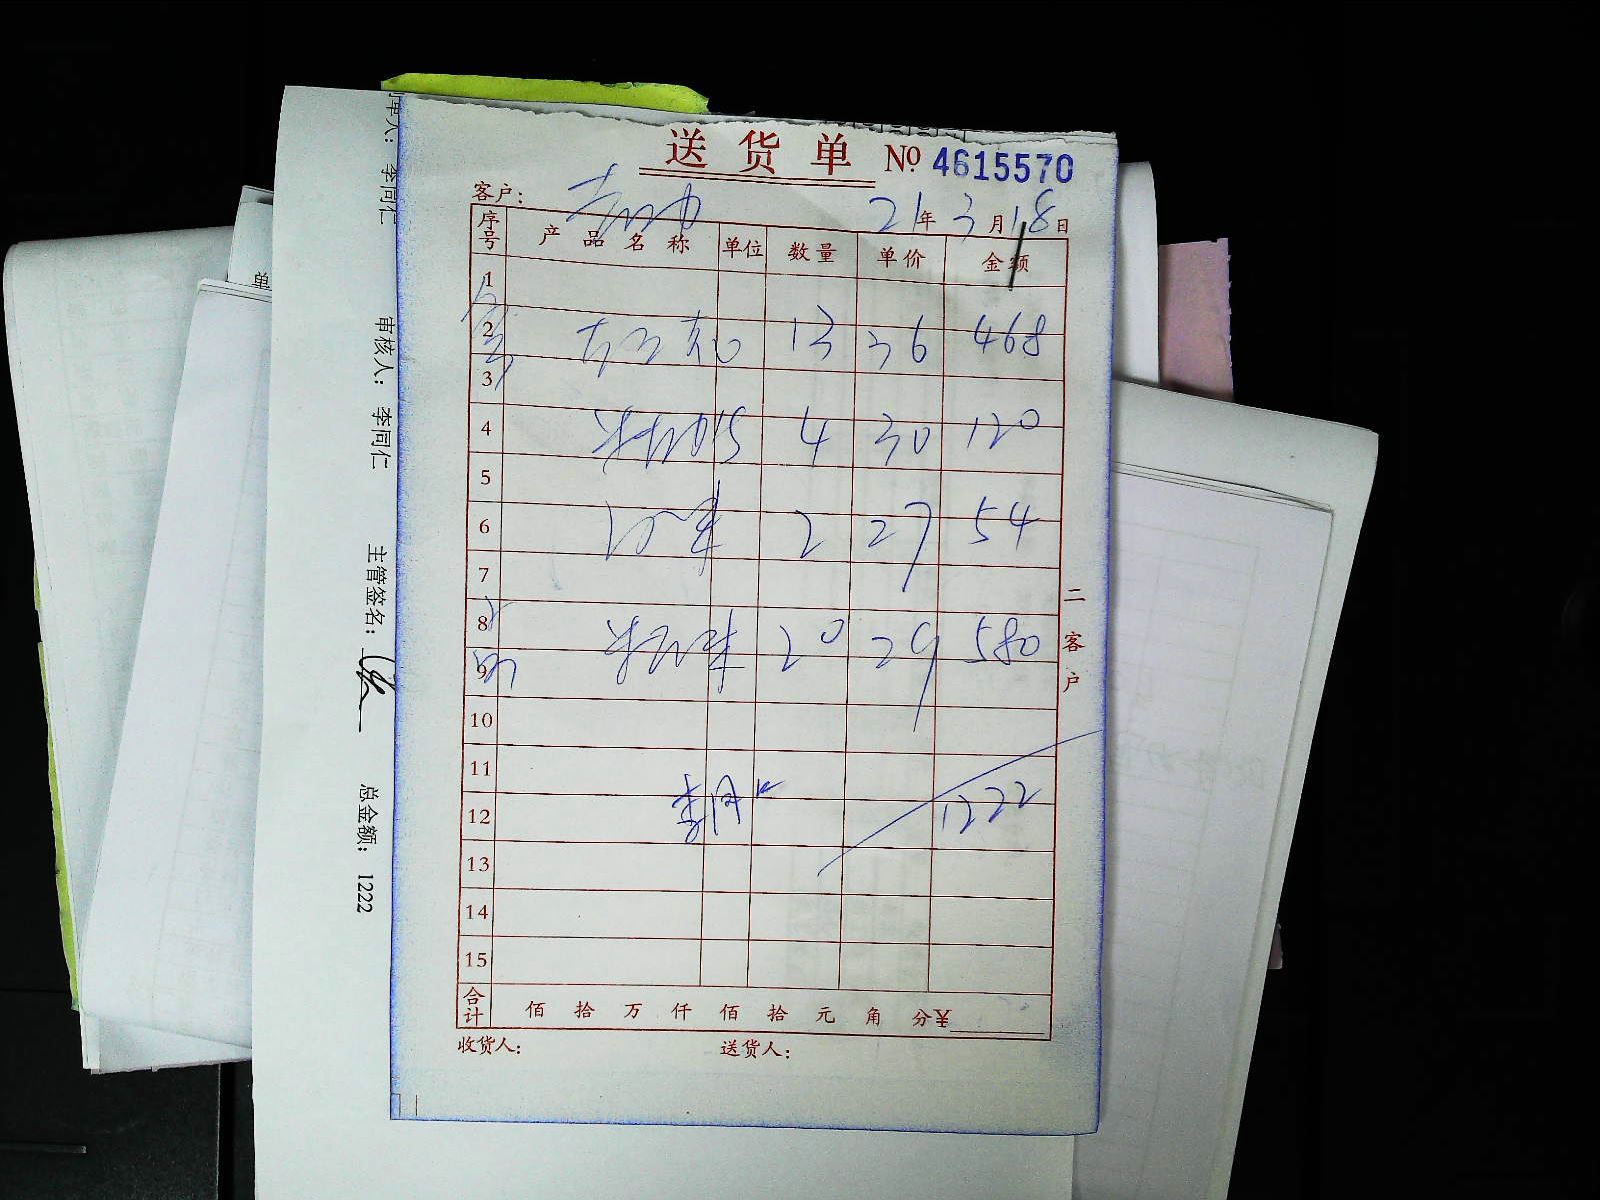 送货单 No 4615570
客户: 21年3月18日
序号 产品名称 单位 数量 单价 金额
1
2 13 36 468
3
4 4 30 120
5
6 2 27 54
7
8 20 29 580
9
10
11
12 1222
13
14
15
合计 佰 拾 万 仟 佰 拾 元 角 分¥
收货人: 送货人:
二客户
单人: 李同仁
审核人: 李同仁
主管签名:
总金额: 1222
单